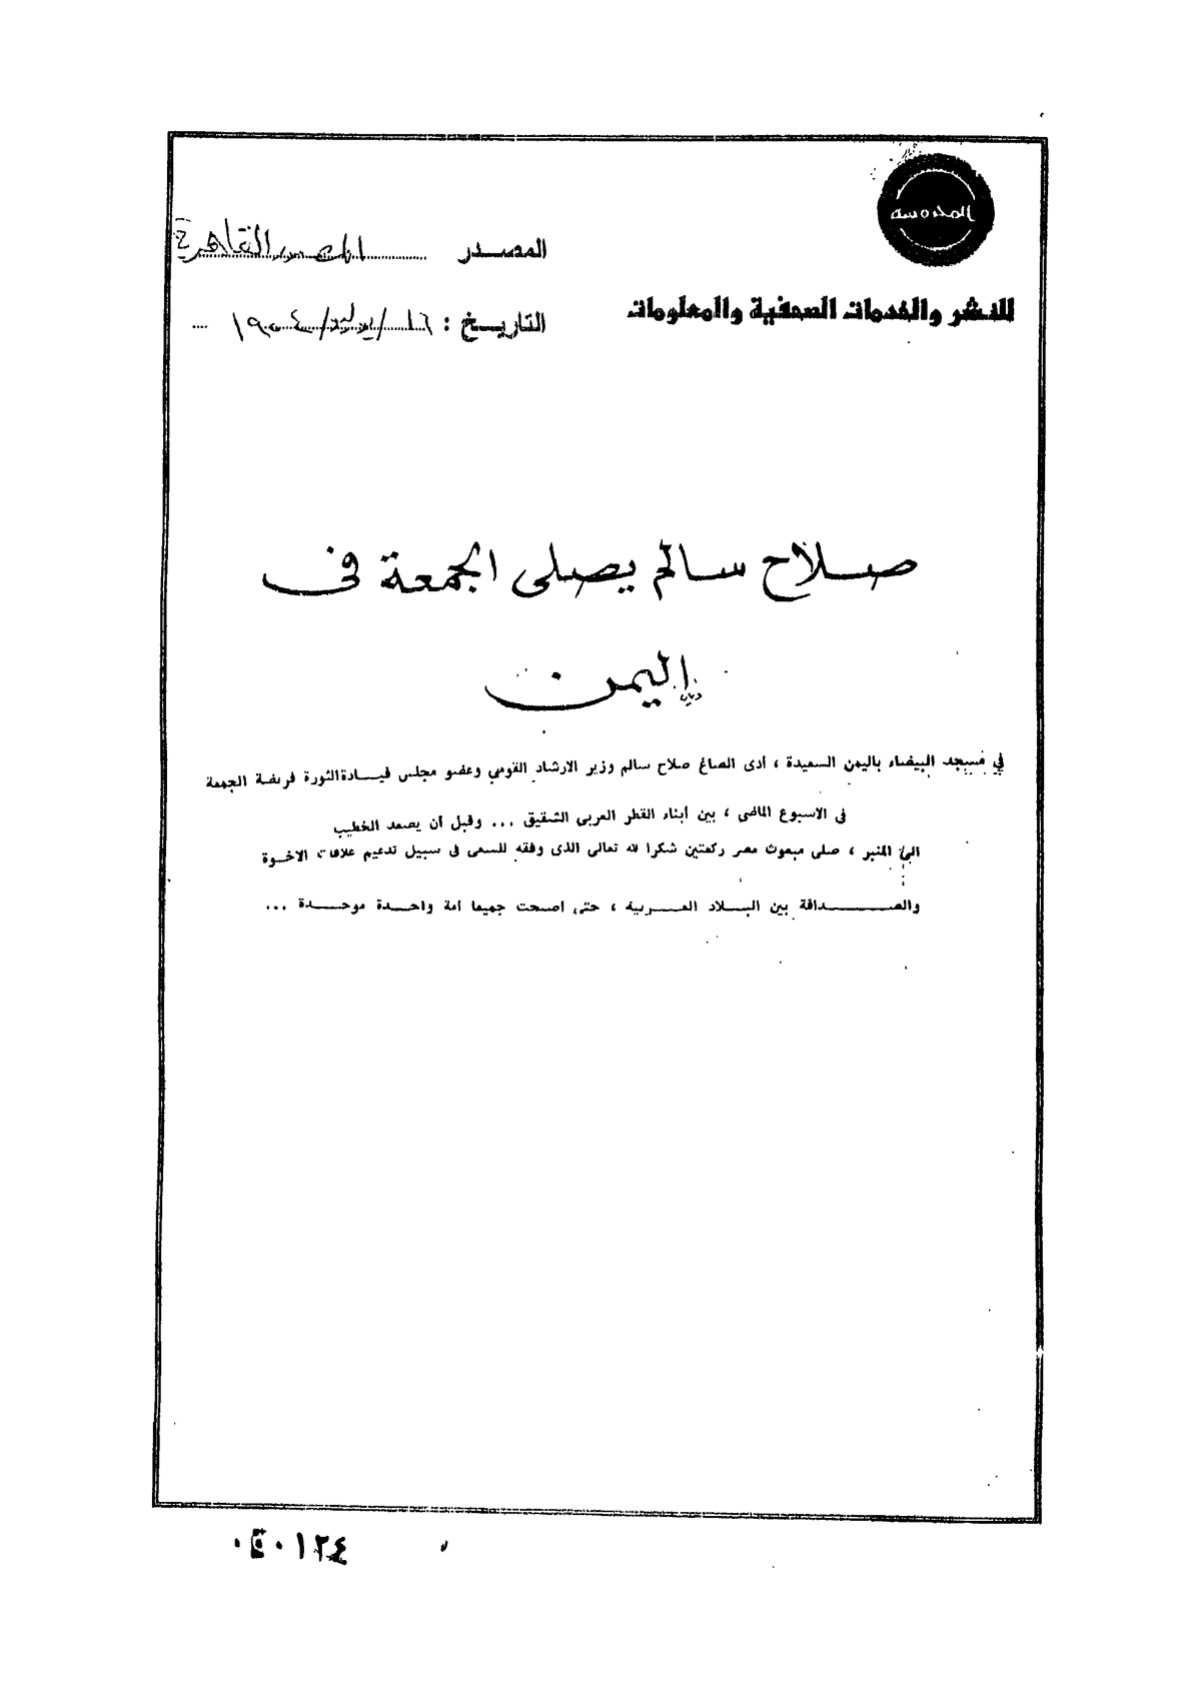 المحروسة
للنشر والخدمات الصحفية والمعلومات
المصدر ..... المصور القاهرية
التاريخ : ١٦/يوليو/١٩٥٤ ....
صلاح سالم يصلى الجمعة فى
اليمن
في مسجد البيضاء باليمن السعيدة ، أدى الصاغ صلاح سالم وزير الارشاد القومي وعضو مجلس قيادة الثورة فريضة الجمعة
فى الاسبوع الماضى ، بين أبناء القطر العربى الشقيق ... وقبل أن يصعد الخطيب
الى المنبر ، صلى مبعوث مصر ركعتين شكرا لله تعالى الذى وفقه للسعى فى سبيل تدعيم علاقات الاخوة
والصداقة بين البلاد العربية ، حتى اصبحت جميعا امة واحدة موحدة ...